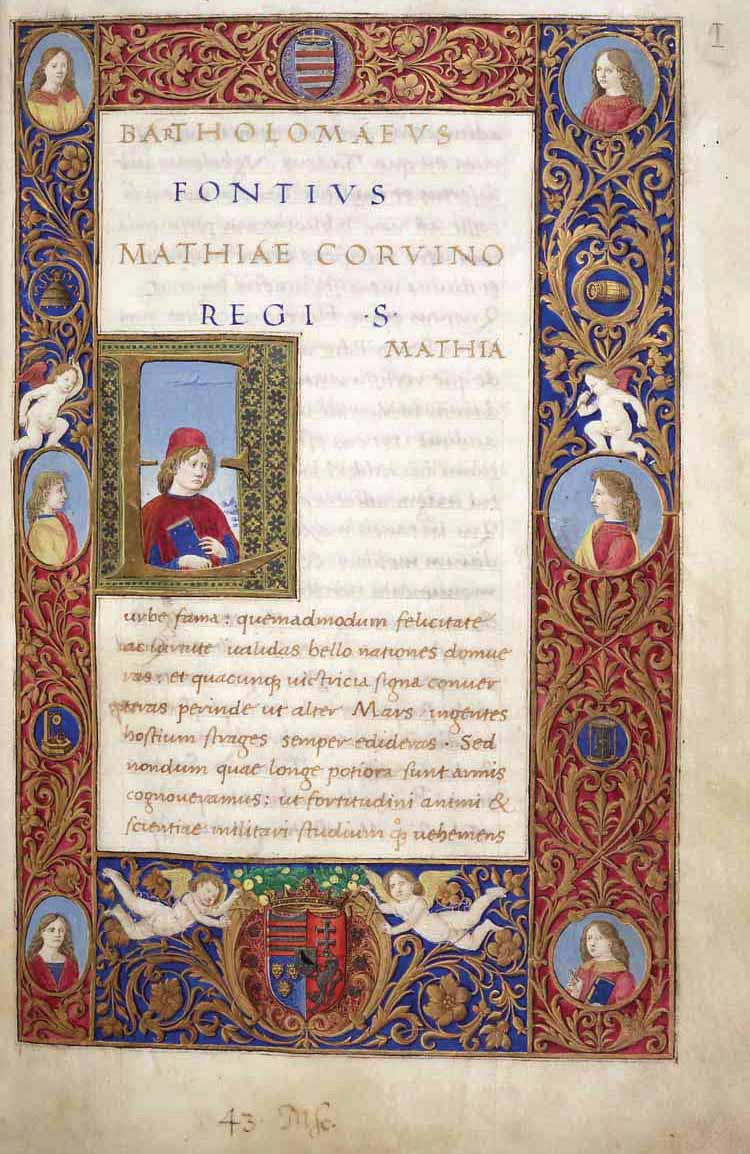 I
BARTHOLOMAEVS
FONTIVS
MATHIAE CORVINO
REGI · S
MATHIA
E
urbe fama: quemadmodum felicitate
ac uirtute ualidas bello nationes domue
ras: et quacunq; uictricia signa conuer
teras perinde ut alter Mars ingentes
hostium strages semper edideras. Sed
nondum quae longe potiora sunt armis
cognoueramus: ut fortitudini animi &
scientiae militari studium q̊q; uehemens
43. Msc.